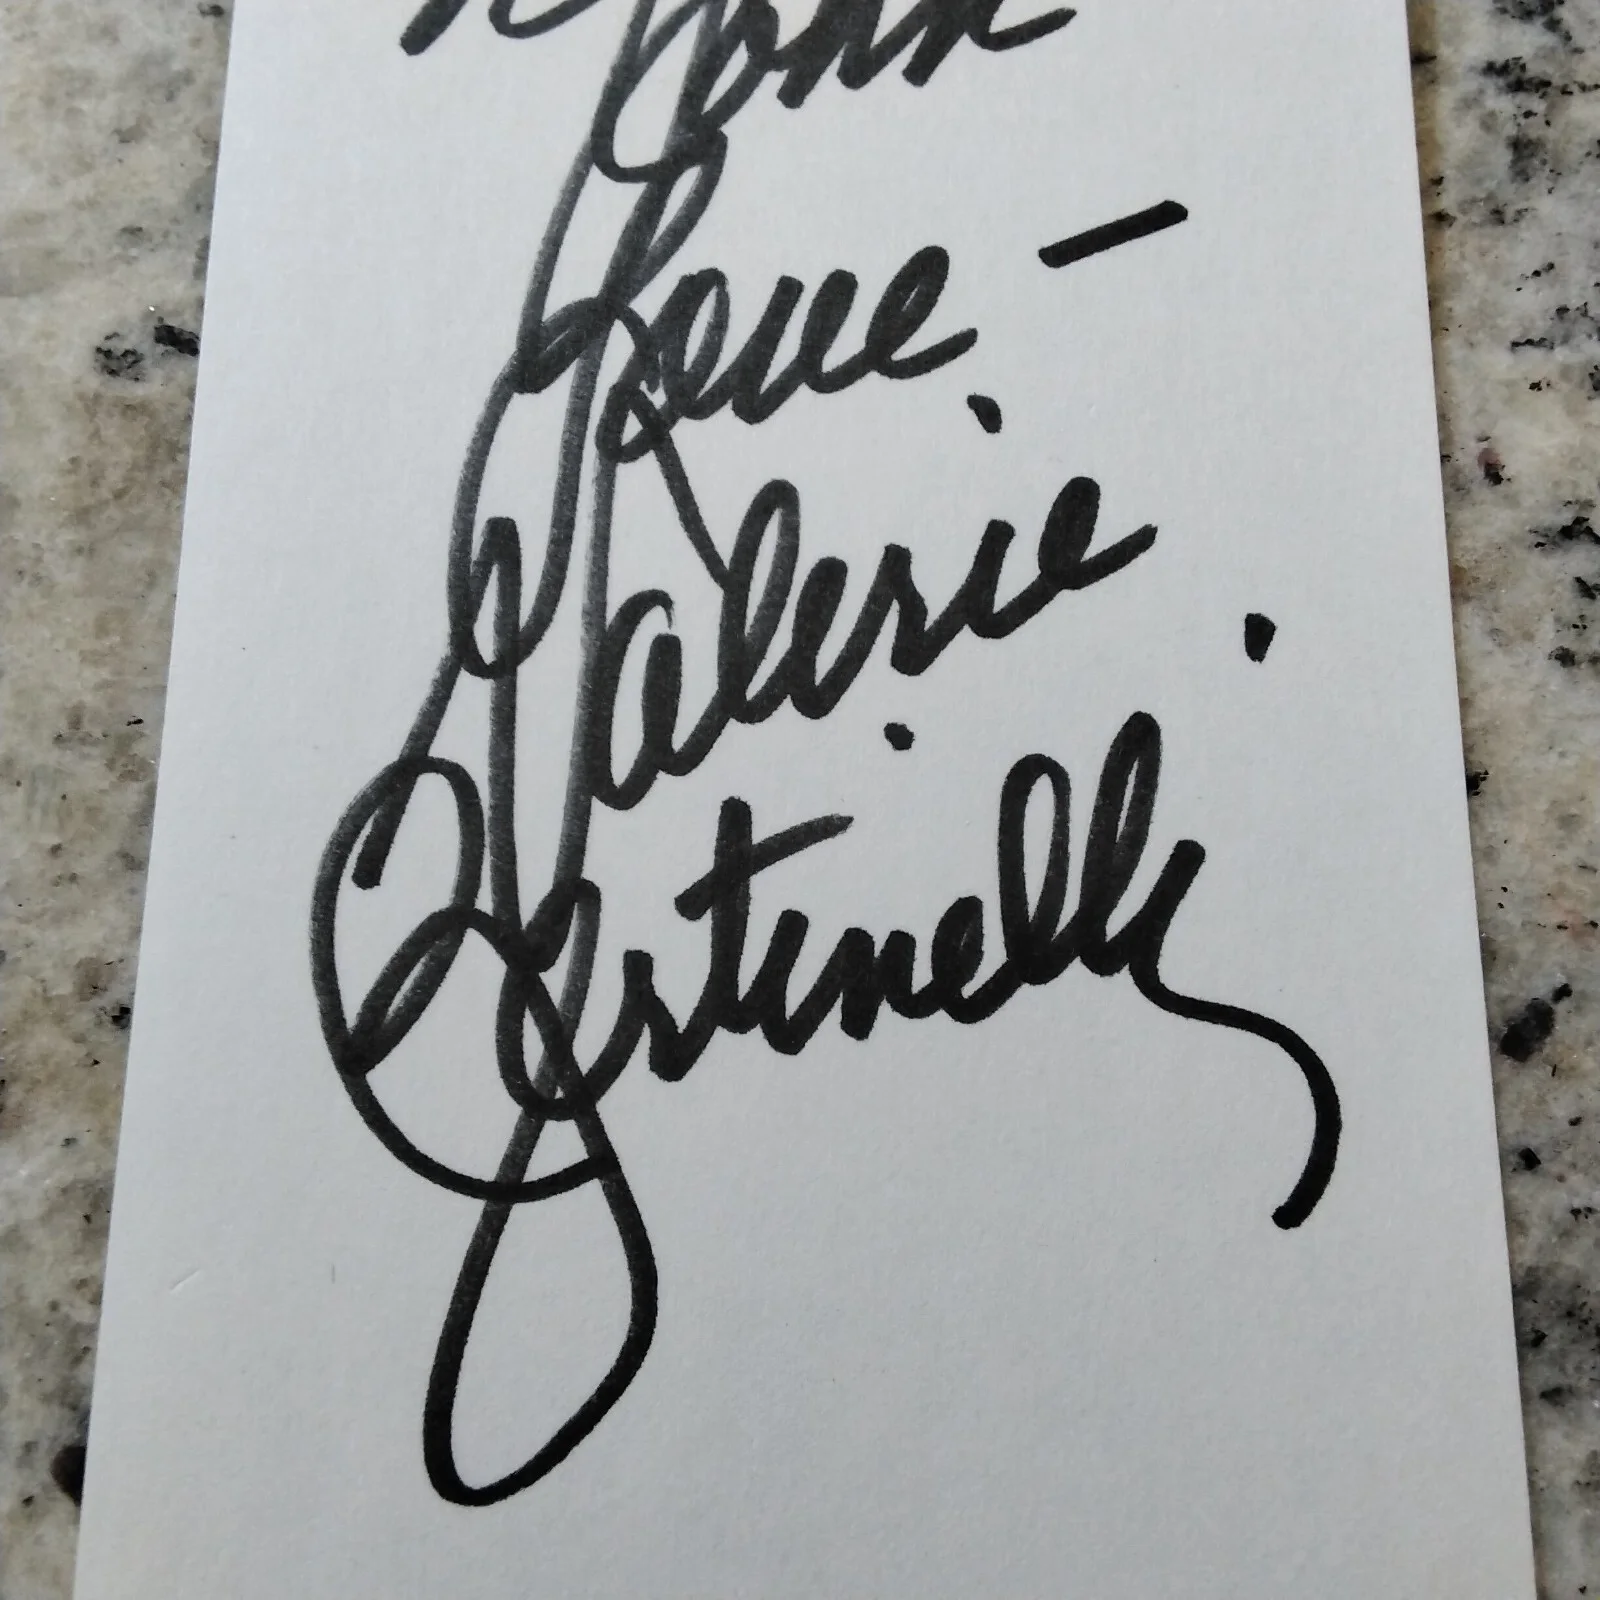 Love –
Valerie
Bertinelli